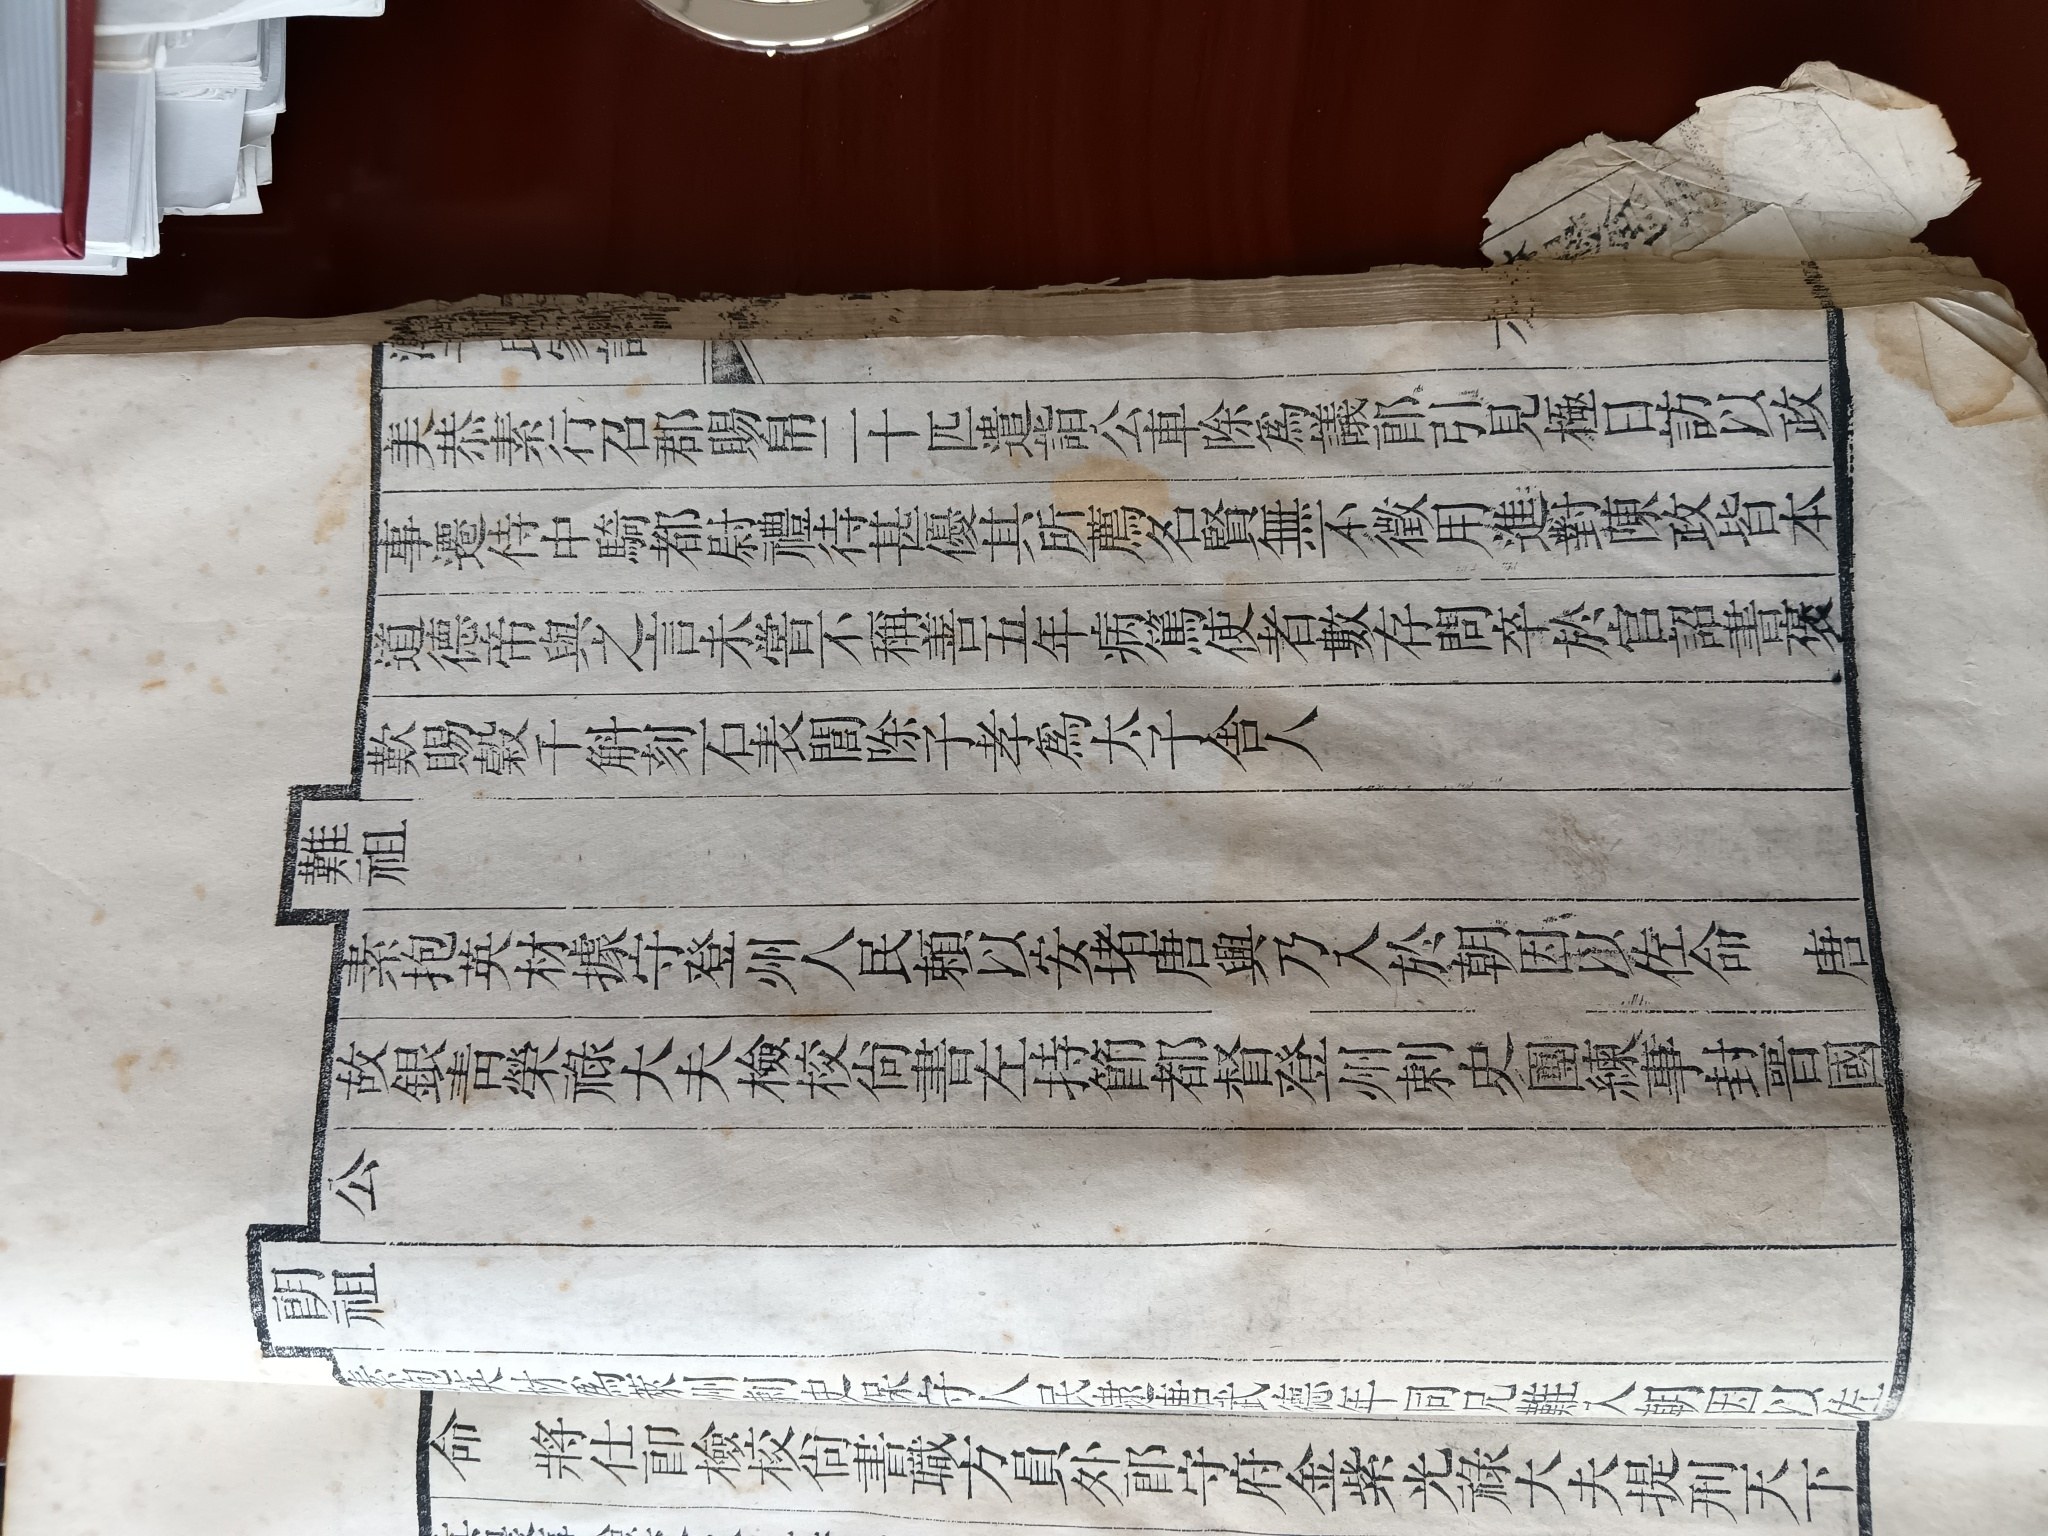 美恭素行召郡賜帛二十匹遣詣公車除爲議郎引見極日訪以政
事遷侍中騎都尉禮待甚優其所薦名賢無不徵用進對陳政皆本
道德帝與之言未嘗不稱善五年病篤使者數存問卒於官詔書褒
歎賜穀千斛刻石表閭除子孝爲太子舍人
難祖
素抱英材據守登州人民賴以安堵唐興乃入於朝因以佐命 唐
故銀青榮祿大夫檢校尚書左持節都督登州刺史團練事封晉國
公
朗祖
素抱英材爲萊州刺史保守人民唐武德年同兄難入朝因以佐
命 將仕郎檢校尚書職方員外郎守府金紫光祿大夫提刑天下